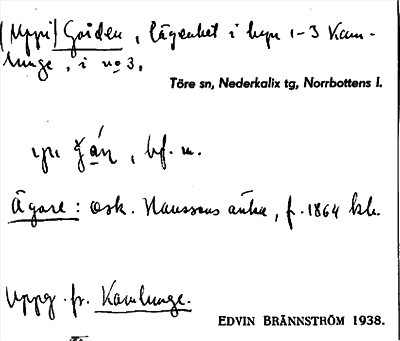 (Uppi) Gården, lägenhet i byn 1-3 Kam-
lunge, i no 3,
Töre sn, Nederkalix tg, Norrbottens l.
bf. m.
Ägare: Osk. Hanssons änka, f. 1864 bh.
Uppg. fr. Kamlunge.
EDVIN BRÄNNSTRÖM 1938.